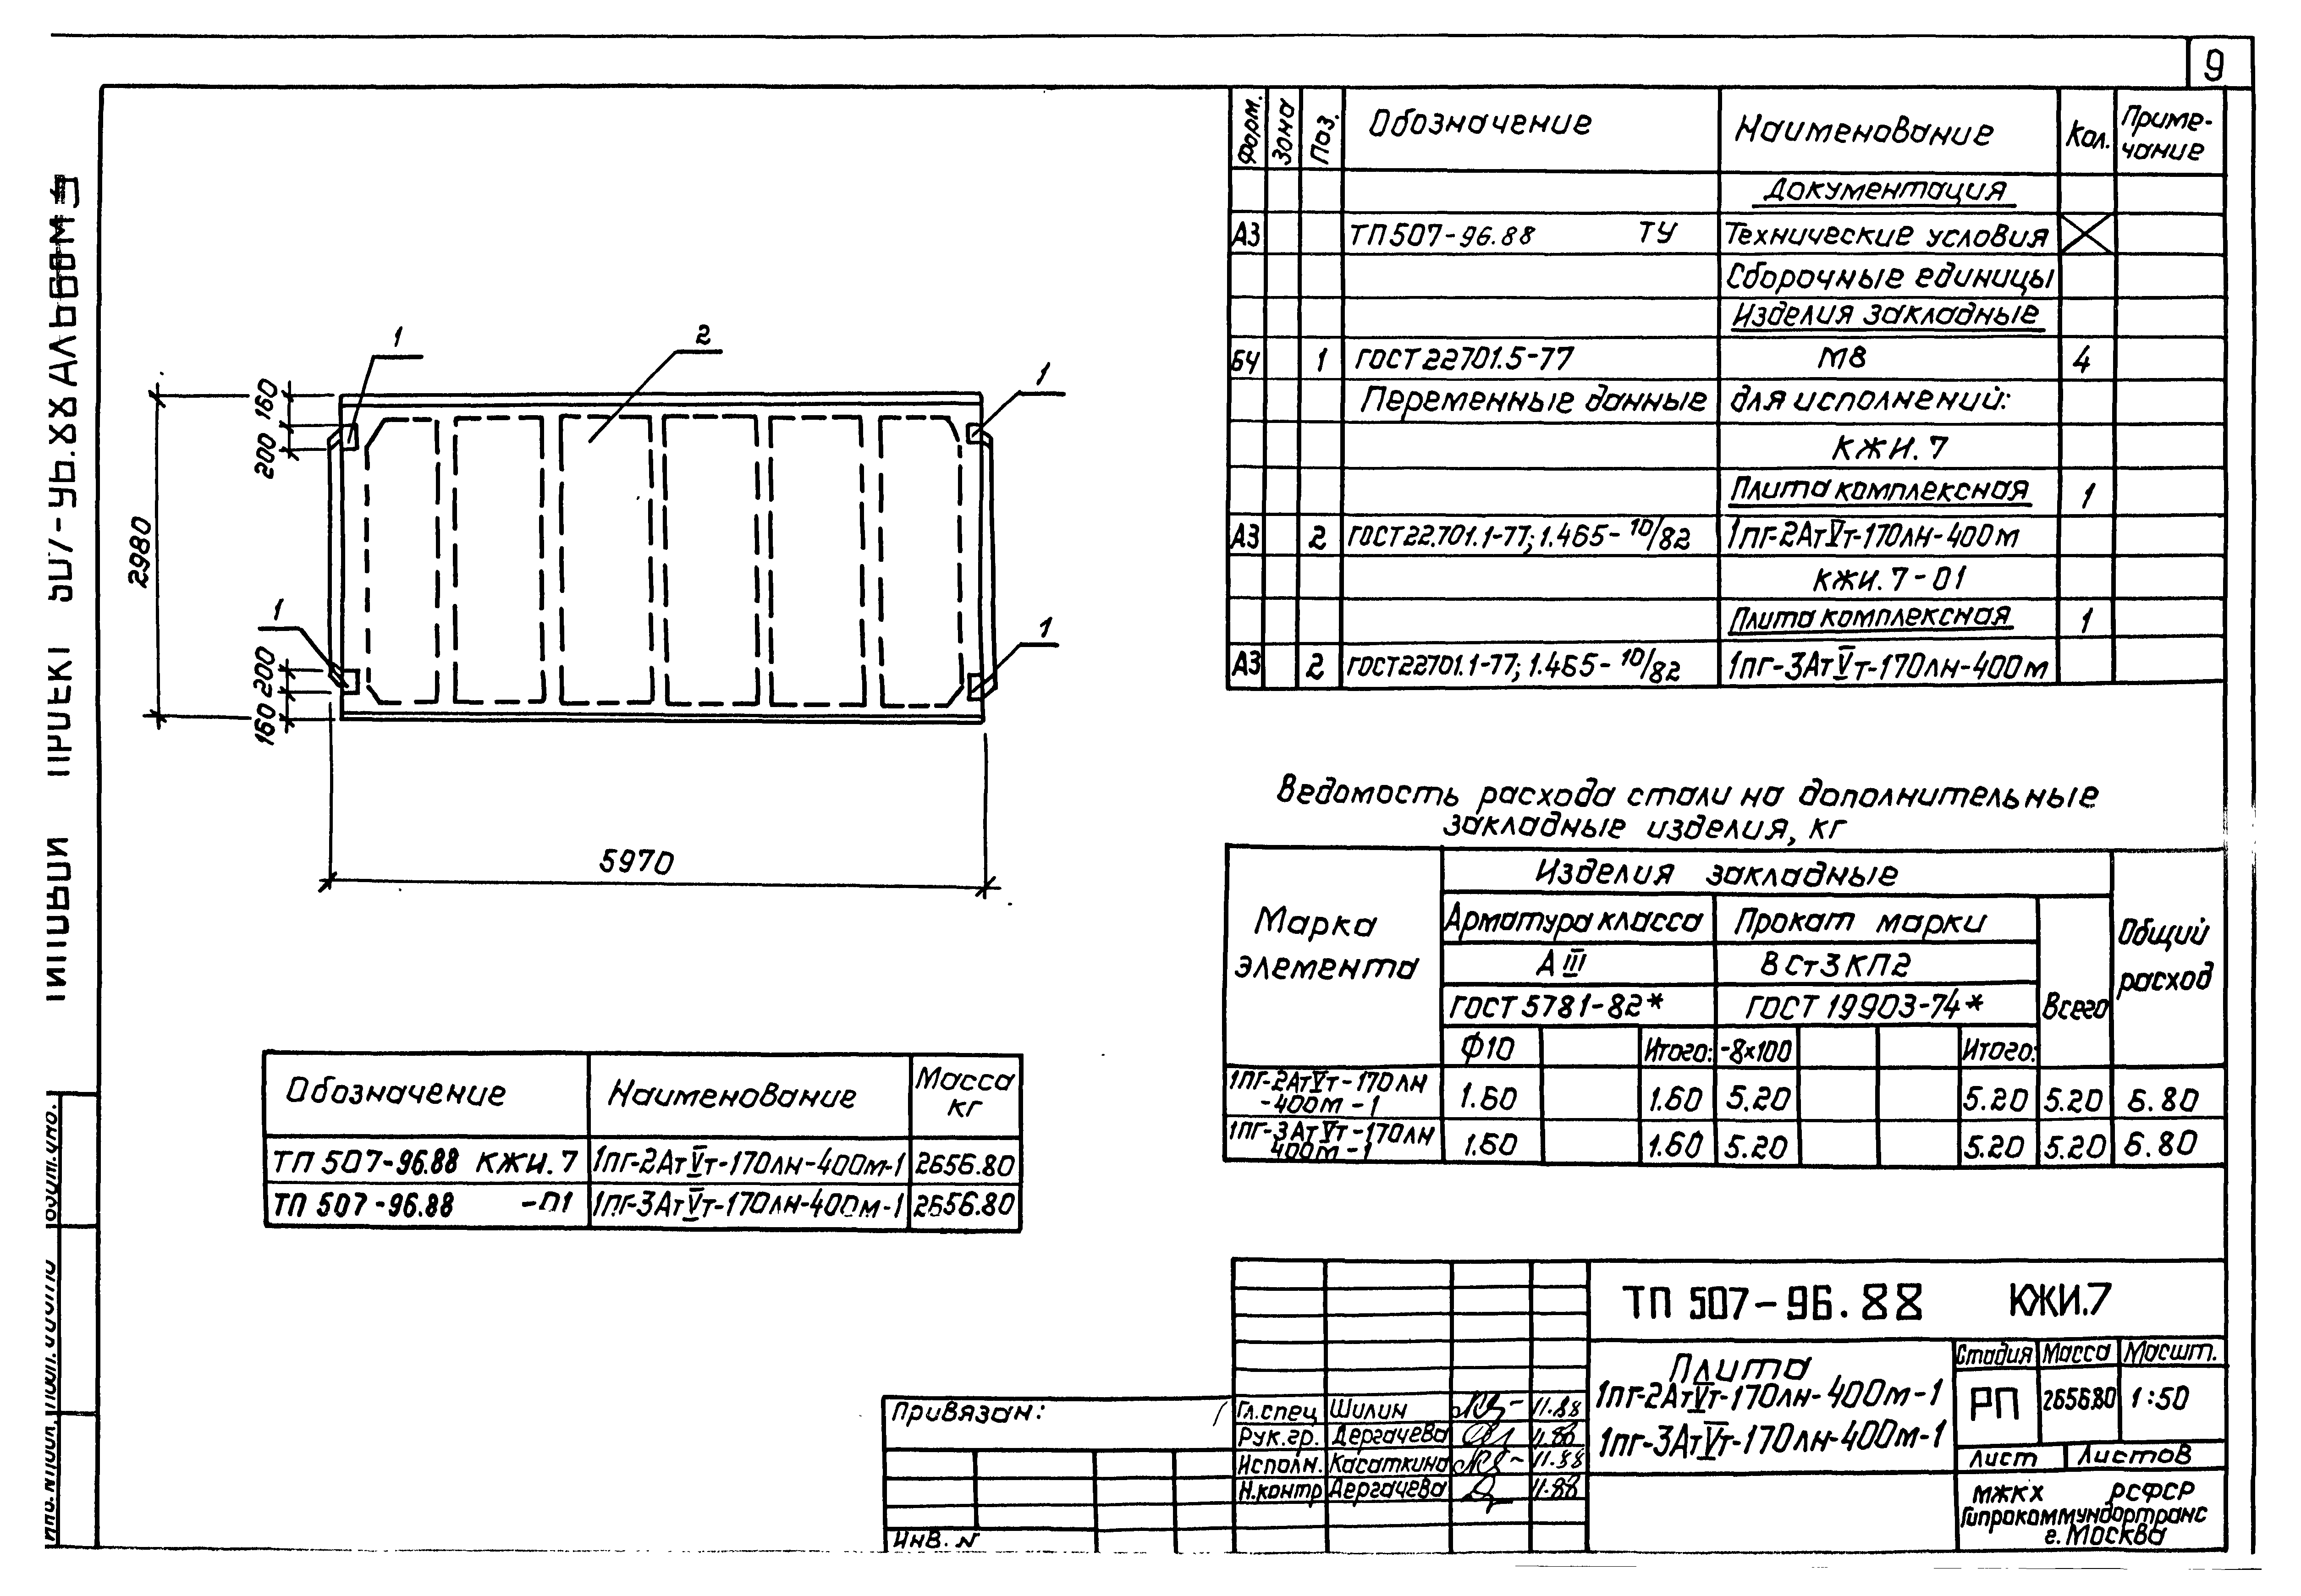 9
Форм. Зона Поз. Обозначение Наименование Кол. Приме-
чание
Документация
А3 ТП507-96.88 ТУ Технические условия
Сборочные единицы
Изделия закладные
БЧ 1 ГОСТ 22701.5-77 М8 4
Переменные данные для исполнений:
КЖИ.7
Плита комплексная 1
А3 2 ГОСТ22.701.1-77; 1.465-10/82 1ПГ-2АтVт-170лн-400м
КЖИ.7-01
Плита комплексная 1
А3 2 ГОСТ22701.1-77; 1.465-10/82 1ПГ-3АтVт-170лн-400м
1
2
1
160
200
2980
1
1
200
160
5970
Ведомость расхода стали на дополнительные
закладные изделия, кг
Марка
элемента
Изделия закладные
Общий
расход
Арматура класса Прокат марки
Всего
АIII ВСт3КП2
ГОСТ 5781-82* ГОСТ 19903-74*
Ф10 Итого: -8х100 Итого:
1ПГ-2АтVт-170лн
-400м-1
1.60 1.60 5.20 5.20 5.20 6.80
1ПГ-3АтVт-170лн
400м-1
1.60 1.60 5.20 5.20 5.20 6.80
Обозначение Наименование Масса
кг
ТП 507-96.88 КЖИ.7 1ПГ-2АтVт-170лн-400м-1 2656.80
ТП 507-96.88 -01 1ПГ-3АтVт-170лн-400м-1 2656.80
Привязан:
Инв. N
Гл.спец Шилин 11.88
Рук.гр. Дергачева 11.88
Исполн. Касаткина 11.88
Н.контр Дергачева 11.88
ТП 507-96.88 КЖИ.7
Плита
1ПГ-2АтVт-170лн-400м-1
1ПГ-3АтVт-170лн-400м-1
Стадия Масса Масшт.
РП 2656.80 1:50
Лист Листов
МЖКХ РСФСР
Гипрокоммундортранс
г. Москва
ПРОЕКТ 507-96.88 АЛЬБОМ